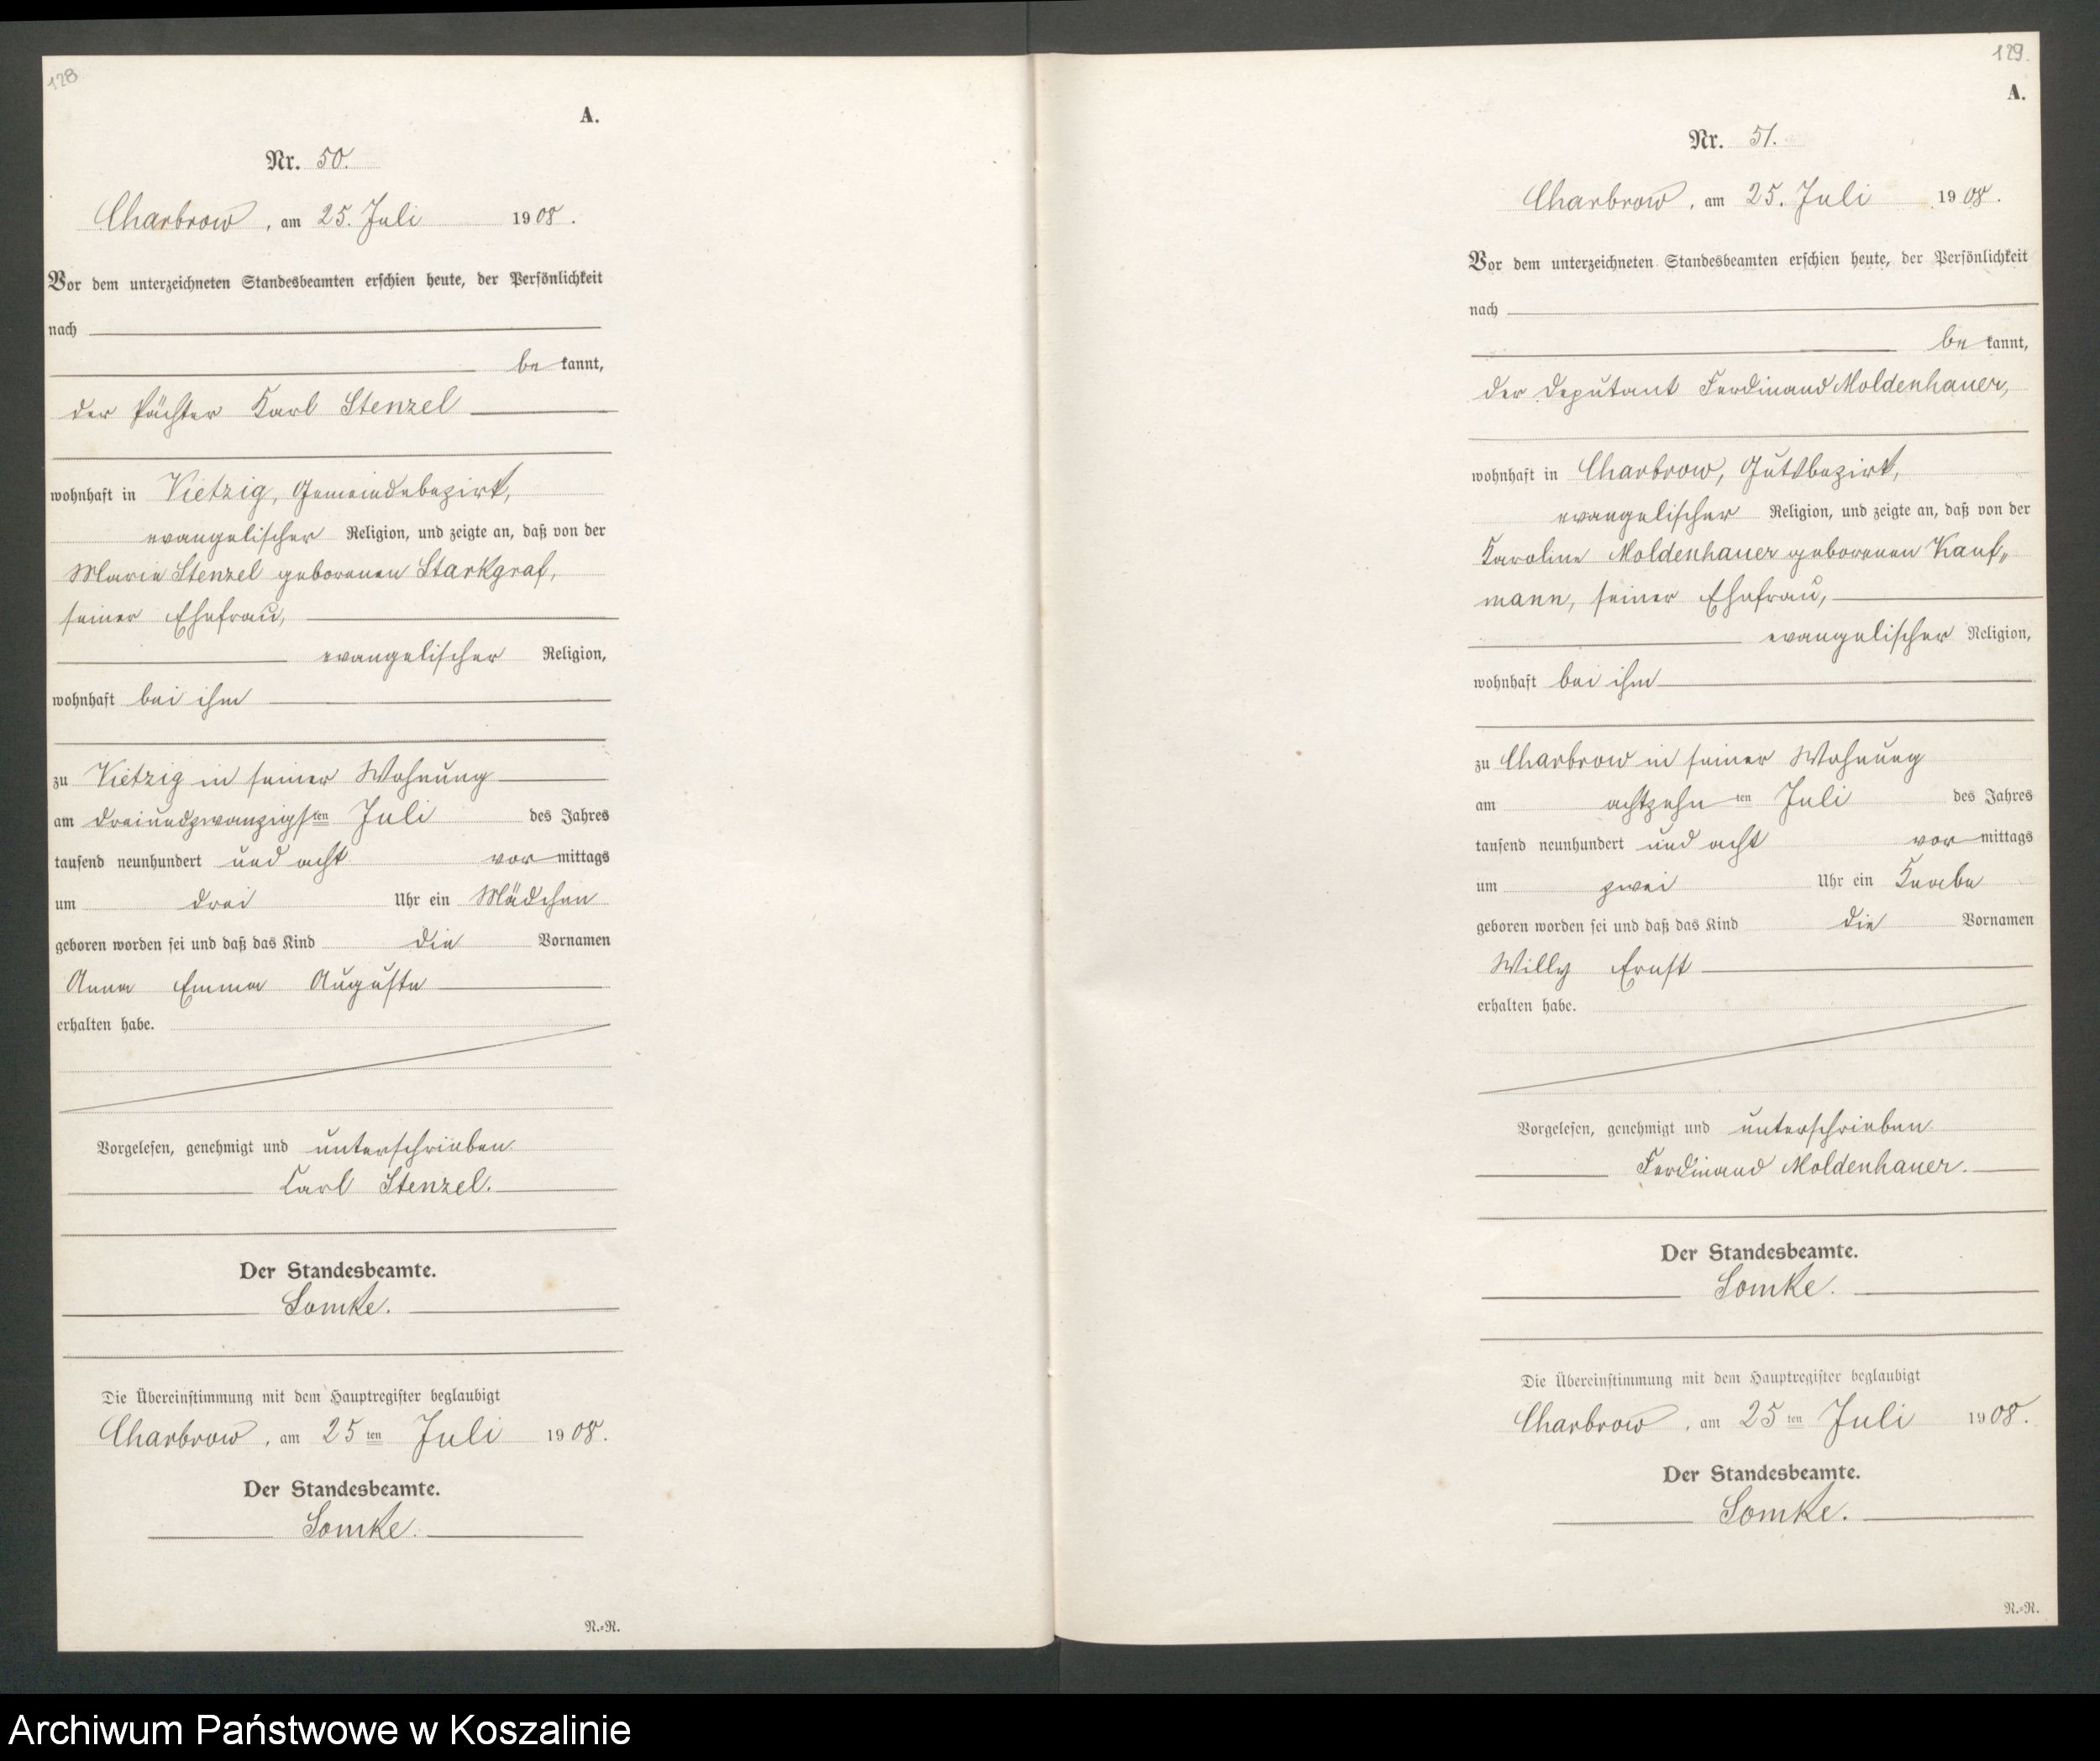 128
A.
Nr. 50.
Charbrow, am 25. Juli 1908.
Vor dem unterzeichneten Standesbeamten erschien heute, der Persönlichkeit
nach
be kannt,
der Pächter Karl Stenzel
wohnhaft in Vietzig, Gemeindebezirk,
evangelischer Religion, und zeigte an, daß von der
Marie Stenzel geborenen Starkgraf,
seiner Ehefrau,
evangelischer Religion,
wohnhaft bei ihm
zu Vietzig in seiner Wohnung
am dreiundzwanzigsten Juli des Jahres
tausend neunhundert und acht vor mittags
um drei Uhr ein Mädchen
geboren worden sei und daß das Kind die Vornamen
Anna Emma Auguste
erhalten habe.
Vorgelesen, genehmigt und unterschrieben
Carl Stenzel.
Der Standesbeamte.
Somke.
Die Übereinstimmung mit dem Hauptregister beglaubigt
Charbrow, am 25 ten Juli 1908.
Der Standesbeamte.
Somke.
N.=R.
129.
A.
Nr. 51.
Charbrow, am 25. Juli 1908.
Vor dem unterzeichneten Standesbeamten erschien heute, der Persönlichkeit
nach
be kannt,
der Deputant Ferdinand Moldenhauer,
wohnhaft in Charbrow, Gutsbezirk,
evangelischer Religion, und zeigte an, daß von der
Karoline Moldenhauer geborenen Kauf„
mann, seiner Ehefrau,
evangelischer Religion,
wohnhaft bei ihm
zu Charbrow in seiner Wohnung
am achtzehn ten Juli des Jahres
tausend neunhundert und acht vor mittags
um zwei Uhr ein Knabe
geboren worden sei und daß das Kind die Vornamen
Willy Ernst
erhalten habe.
Vorgelesen, genehmigt und unterschrieben
Ferdinand Moldenhauer.
Der Standesbeamte.
Somke.
Die Übereinstimmung mit dem Hauptregister beglaubigt
Charbrow, am 25 ten Juli 1908.
Der Standesbeamte.
Somke.
N.=R.
Archiwum Państwowe w Koszalinie